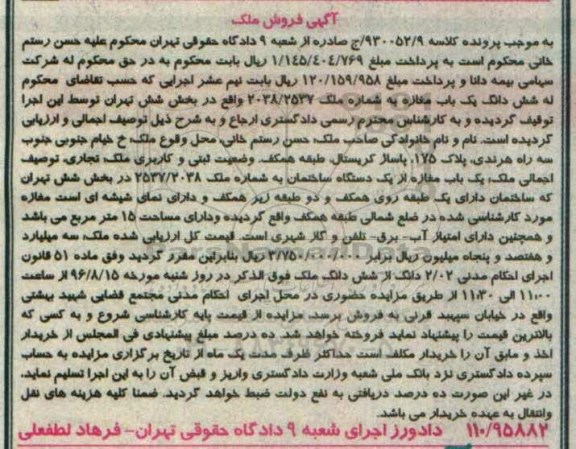 آگهی فروش ملک
به موجب پرونده کلاسه ۹۳۰۰۵۲/۹/ج صادره از شعبه ۹ دادگاه حقوقی تهران محکوم علیه حسن رستم
خانی محکوم است به پرداخت مبلغ ۱/۱۴۵/۴۰۴/۷۶۹ ریال بابت محکوم به در حق محکوم له شرکت
سهامی بیمه دانا و پرداخت مبلغ ۱۲۰/۱۵۹/۹۵۸ ریال بابت نیم عشر اجرایی که حسب تقاضای محکوم
له شش دانگ یک باب مغازه به شماره ملک ۲۰۳۸/۲۵۳۷ واقع در بخش شش تهران توسط این اجرا
توقیف گردیده و به کارشناس محترم رسمی دادگستری ارجاع و به شرح ذیل توصیف اجمالی و ارزیابی
گردیده است. نام و نام خانوادگی صاحب ملک: حسن رستم خانی، محل وقوع ملک: خ خیام جنوبی جنوب
سه راه هرندی، پلاک ۱۷۵، پاساژ کریستال، طبقه همکف. وضعیت ثبتی و کاربری ملک: تجاری، توصیف
اجمالی ملک: یک باب مغازه از یک دستگاه ساختمان به شماره ملک ۲۵۳۷/۲۰۳۸ در بخش شش تهران
که ساختمان دارای یک طبقه روی همکف و دو طبقه زیر همکف و دارای نمای شیشه ای است مغازه
مورد کارشناسی شده در ضلع شمالی طبقه همکف واقع گردیده ودارای مساحت ۱۵ متر مربع می باشد
و همچنین دارای امتیاز آب- برق- تلفن و گاز شهری است. قیمت کل ارزیابی شده ملک: سه میلیارد
و هفتصد و پنجاه میلیون ریال برابر ۳/۷۵۰/۰۰۰/۰۰۰ ریال بنابراین مقرر گردید وفق ماده ۵۱ قانون
اجرای احکام مدنی ۲/۰۲ دانگ از شش دانگ ملک فوق الذکر در روز شنبه مورخه ۹۶/۸/۱۵ از ساعت
۱۱:۰۰ الی ۱۱:۳۰ از طریق مزایده حضوری در محل اجرای احکام مدنی مجتمع قضایی شهید بهشتی
واقع در خیابان سپهبد قرنی به فروش برسد. مزایده از قیمت پایه کارشناسی شروع و به کسی که
بالاترین قیمت را پیشنهاد نماید فروخته خواهد شد. ده درصد مبلغ پیشنهادی فی المجلس از خریدار
اخذ و مابق آن را خریدار مکلف است حداکثر ظرف مدت یک ماه از تاریخ برگزاری مزایده به حساب
سپرده دادگستری نزد بانک ملی شعبه وزارت دادگستری واریز و قبض آن را به این اجرا تسلیم نماید.
در غیر این صورت ده درصد دریافتی به نفع دولت ضبط خواهد گردید. ضمنا کلیه هزینه های نقل
وانتقال به عهده خریدار می باشد.
۱۱۰/۹۵۸۸۲ دادورز اجرای شعبه ۹ دادگاه حقوقی تهران- فرهاد لطفعلی